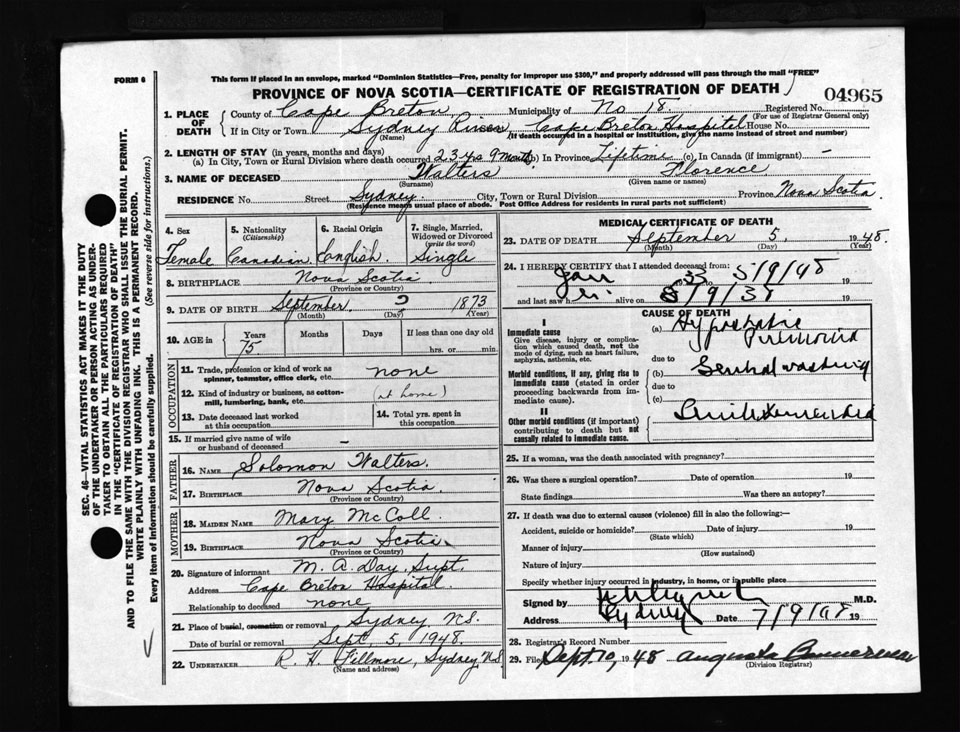 FORM 6
This form if placed in an envelope, marked "Dominion Statistics—Free, penalty for improper use $300," and properly addressed will pass through the mail "FREE"
PROVINCE OF NOVA SCOTIA—CERTIFICATE OF REGISTRATION OF DEATH
04965
1. PLACE OF DEATH County of Cape Breton Municipality of No 18. Registered No.
(For use of Registrar General only)
If in City or Town Sydney River, Cape Breton Hospital House No.
(Name) (If death occurred in a hospital or institution, give the name instead of street and number)
2. LENGTH OF STAY (in years, months and days)
(a) In City, Town or Rural Division where death occurred 23 yrs 9 months (b) In Province Lifetime (c) In Canada (if immigrant) —
3. NAME OF DECEASED Walters Florence
(Surname) (Given name or names)
RESIDENCE No. Street Sydney City, Town or Rural Division Province Nova Scotia
(Residence means usual place of abode. Post Office Address for residents in rural parts not sufficient)
4. Sex 5. Nationality (Citizenship) 6. Racial Origin 7. Single, Married, Widowed or Divorced (write the word)
Female Canadian English Single
8. BIRTHPLACE Nova Scotia
(Province or Country)
9. DATE OF BIRTH September 1873
(Month) (Day) (Year)
10. AGE in Years Months Days If less than one day old
75 hrs. or min.
OCCUPATION
11. Trade, profession or kind of work as spinner, teamster, office clerk, etc. none
12. Kind of industry or business, as cotton-mill, lumbering, bank, etc. (at home)
13. Date deceased last worked at this occupation
14. Total yrs. spent in this occupation
15. If married give name of wife or husband of deceased —
FATHER
16. NAME Solomon Walters.
17. BIRTHPLACE Nova Scotia
(Province or Country)
MOTHER
18. MAIDEN NAME Mary McColl
19. BIRTHPLACE Nova Scotia
(Province or Country)
20. Signature of informant M. A. Day, Supt.
Address Cape Breton Hospital.
Relationship to deceased none
21. Place of burial, cremation or removal Sydney N.S.
Date of burial or removal Sept 5, 1948.
22. UNDERTAKER R. H. Fillmore, Sydney, N.S.
(Name and address)
MEDICAL CERTIFICATE OF DEATH
23. DATE OF DEATH September 5, 1948.
(Month) (Day) (Year)
24. I HEREBY CERTIFY that I attended deceased from:
Jan 33 5/9/48 19
and last saw h alive on 19
CAUSE OF DEATH
I
Immediate cause
Give disease, injury or complication which caused death, not the mode of dying, such as heart failure, asphyxia, asthenia, etc.
(a) Hypostatic Pneumonia
due to
Morbid conditions, if any, giving rise to immediate cause (stated in order proceeding backwards from immediate cause).
(b)
due to
(c)
II
Other morbid conditions (if important) contributing to death but not causally related to immediate cause.
Senile
25. If a woman, was the death associated with pregnancy?
26. Was there a surgical operation? Date of operation 19
State findings Was there an autopsy?
27. If death was due to external causes (violence) fill in also the following:—
Accident, suicide or homicide? Date of injury 19
(State which)
Manner of injury
(How sustained)
Nature of injury
Specify whether injury occurred in industry, in home, or in public place
Signed by M.D.
Address Sydney Date 7/9/48 19
28. Registrar's Record Number
29. Filed Sept. 10, 1948 Augusta
(Division Registrar)
SEC. 46—VITAL STATISTICS ACT MAKES IT THE DUTY
OF THE UNDERTAKER OR PERSON ACTING AS UNDER-
TAKER TO OBTAIN ALL THE PARTICULARS REQUIRED
IN THE "CERTIFICATE OF REGISTRATION OF DEATH"
AND TO FILE THE SAME WITH THE DIVISION REGISTRAR WHO SHALL ISSUE THE BURIAL PERMIT.
WRITE PLAINLY WITH UNFADING INK. THIS IS A PERMANENT RECORD.
Every item of information should be carefully supplied. (See reverse side for instructions.)